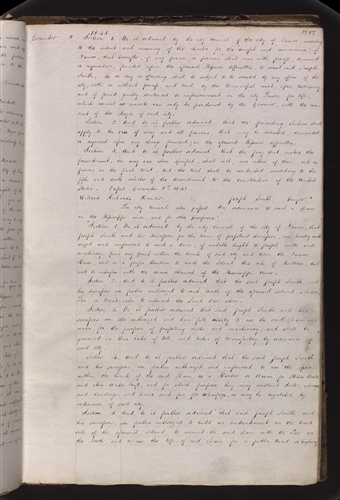 December 8
1843
1797
Section 1. Be it ordained by the city council of the city of Nauvoo, according
to the intent and meaning of the Charter for the
Nauvoo, that hereafter, if any person or persons shall come with process, demand
or requisition, founded upon the aforesaid Missouri difficulties, to arrest said Joseph
Smith, he or they so offending shall be subject to be arrested by any officer of the
city, with or without process, and tried by the Municipal court, upon testimony,
and, if found guilty, sentenced to imprisonment in the city prison for life;
which convict or convicts can only be pardoned by the Governor, with the con-
sent of the Mayor of said city.
Section 2. And be it further ordained, that the preceding Section shall
apply to the case of every and all persons, that may be arrested, demanded
or required upon any charge founded in the aforesaid Missouri difficulties.
Section 3. And be it further ordained that the jury that makes the
presentment, in any case above specified, shall not, nor either of them, act as
jurors on the final trial; but the trial shall be conducted according to the
fifth and sixth articles of the amendment to the constitution of the United
States. Passed December 8th 1843.
Willard Richards Recorder. Joseph Smith Mayor."
The city council also passed "An ordinance to erect a Dam
in the Mississippi river, and for other purposes.
Section 1. Be it ordained by the city council of the city of Nauvoo, that
Joseph Smith and his successors for the term of perpetual succession, are hereby auth-
orized and empowered to erect a dam of suitable height to propel mills and
machinery from any point within the limits of said city and below the Nauvoo
House, and in a proper direction to reach the island this side of Montrose, but
not to interfere with the main channel of the Mississippi river.
Section 2. And be it further ordained that the said Joseph Smith and
his successors are further authorized to
Section 3. Be it further ordained that the said Joseph Smith and his
successors are also authorized and have full
water for the purpose of propelling mills and machinery, and shall be
governed in their rates of toll, and rates of manufacture by ordinance of
said city.
Section 4. And be it further ordained that the said Joseph Smith
and his successors are further authorized and empowered to use the space
within the limits of the said Dam as a Harbor or Basin, for Steam Boats
and other water craft; and for which purpose they may construct docks, wharfs
and landings, and receive such fees for wharfage, as may be regulated by
ordinance of said city.
Section 5. And be it further ordained that said Joseph Smith and
his successors are further authorized to build an embankment on the east
side of the aforesaid island to connect the said Dam with the Pier on
the South and to use the top of said Dam for a public Road or highway